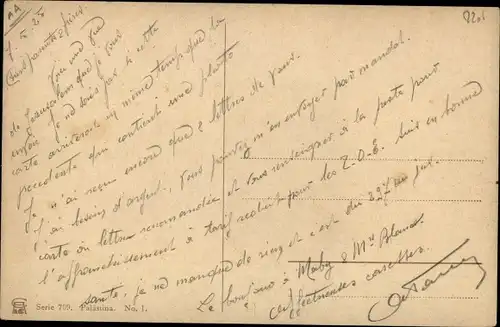 Chers parents & Jims
Voici une vue
de Jérusalem que je vous
envoie. Je ne sais pas si cette
carte arrivera en même temps que la
précédente qui contient une photo
Je n'ai reçu encore que 2 lettres de vous.
J'ai besoin d'argent. Vous pouvez m'en envoyer par mandat
carte ou lettre recommandée et vous renseigner à la poste pour
l'affranchissement à tarif réduit pour les T.O.E. Suis en bonne
santé, je ne manque de rien et c'est du 32% au jus.
Le bonjour à Maby & Mme Blanc
affectueuses caresses
2201
Serie 709. Palästina. No. 1.